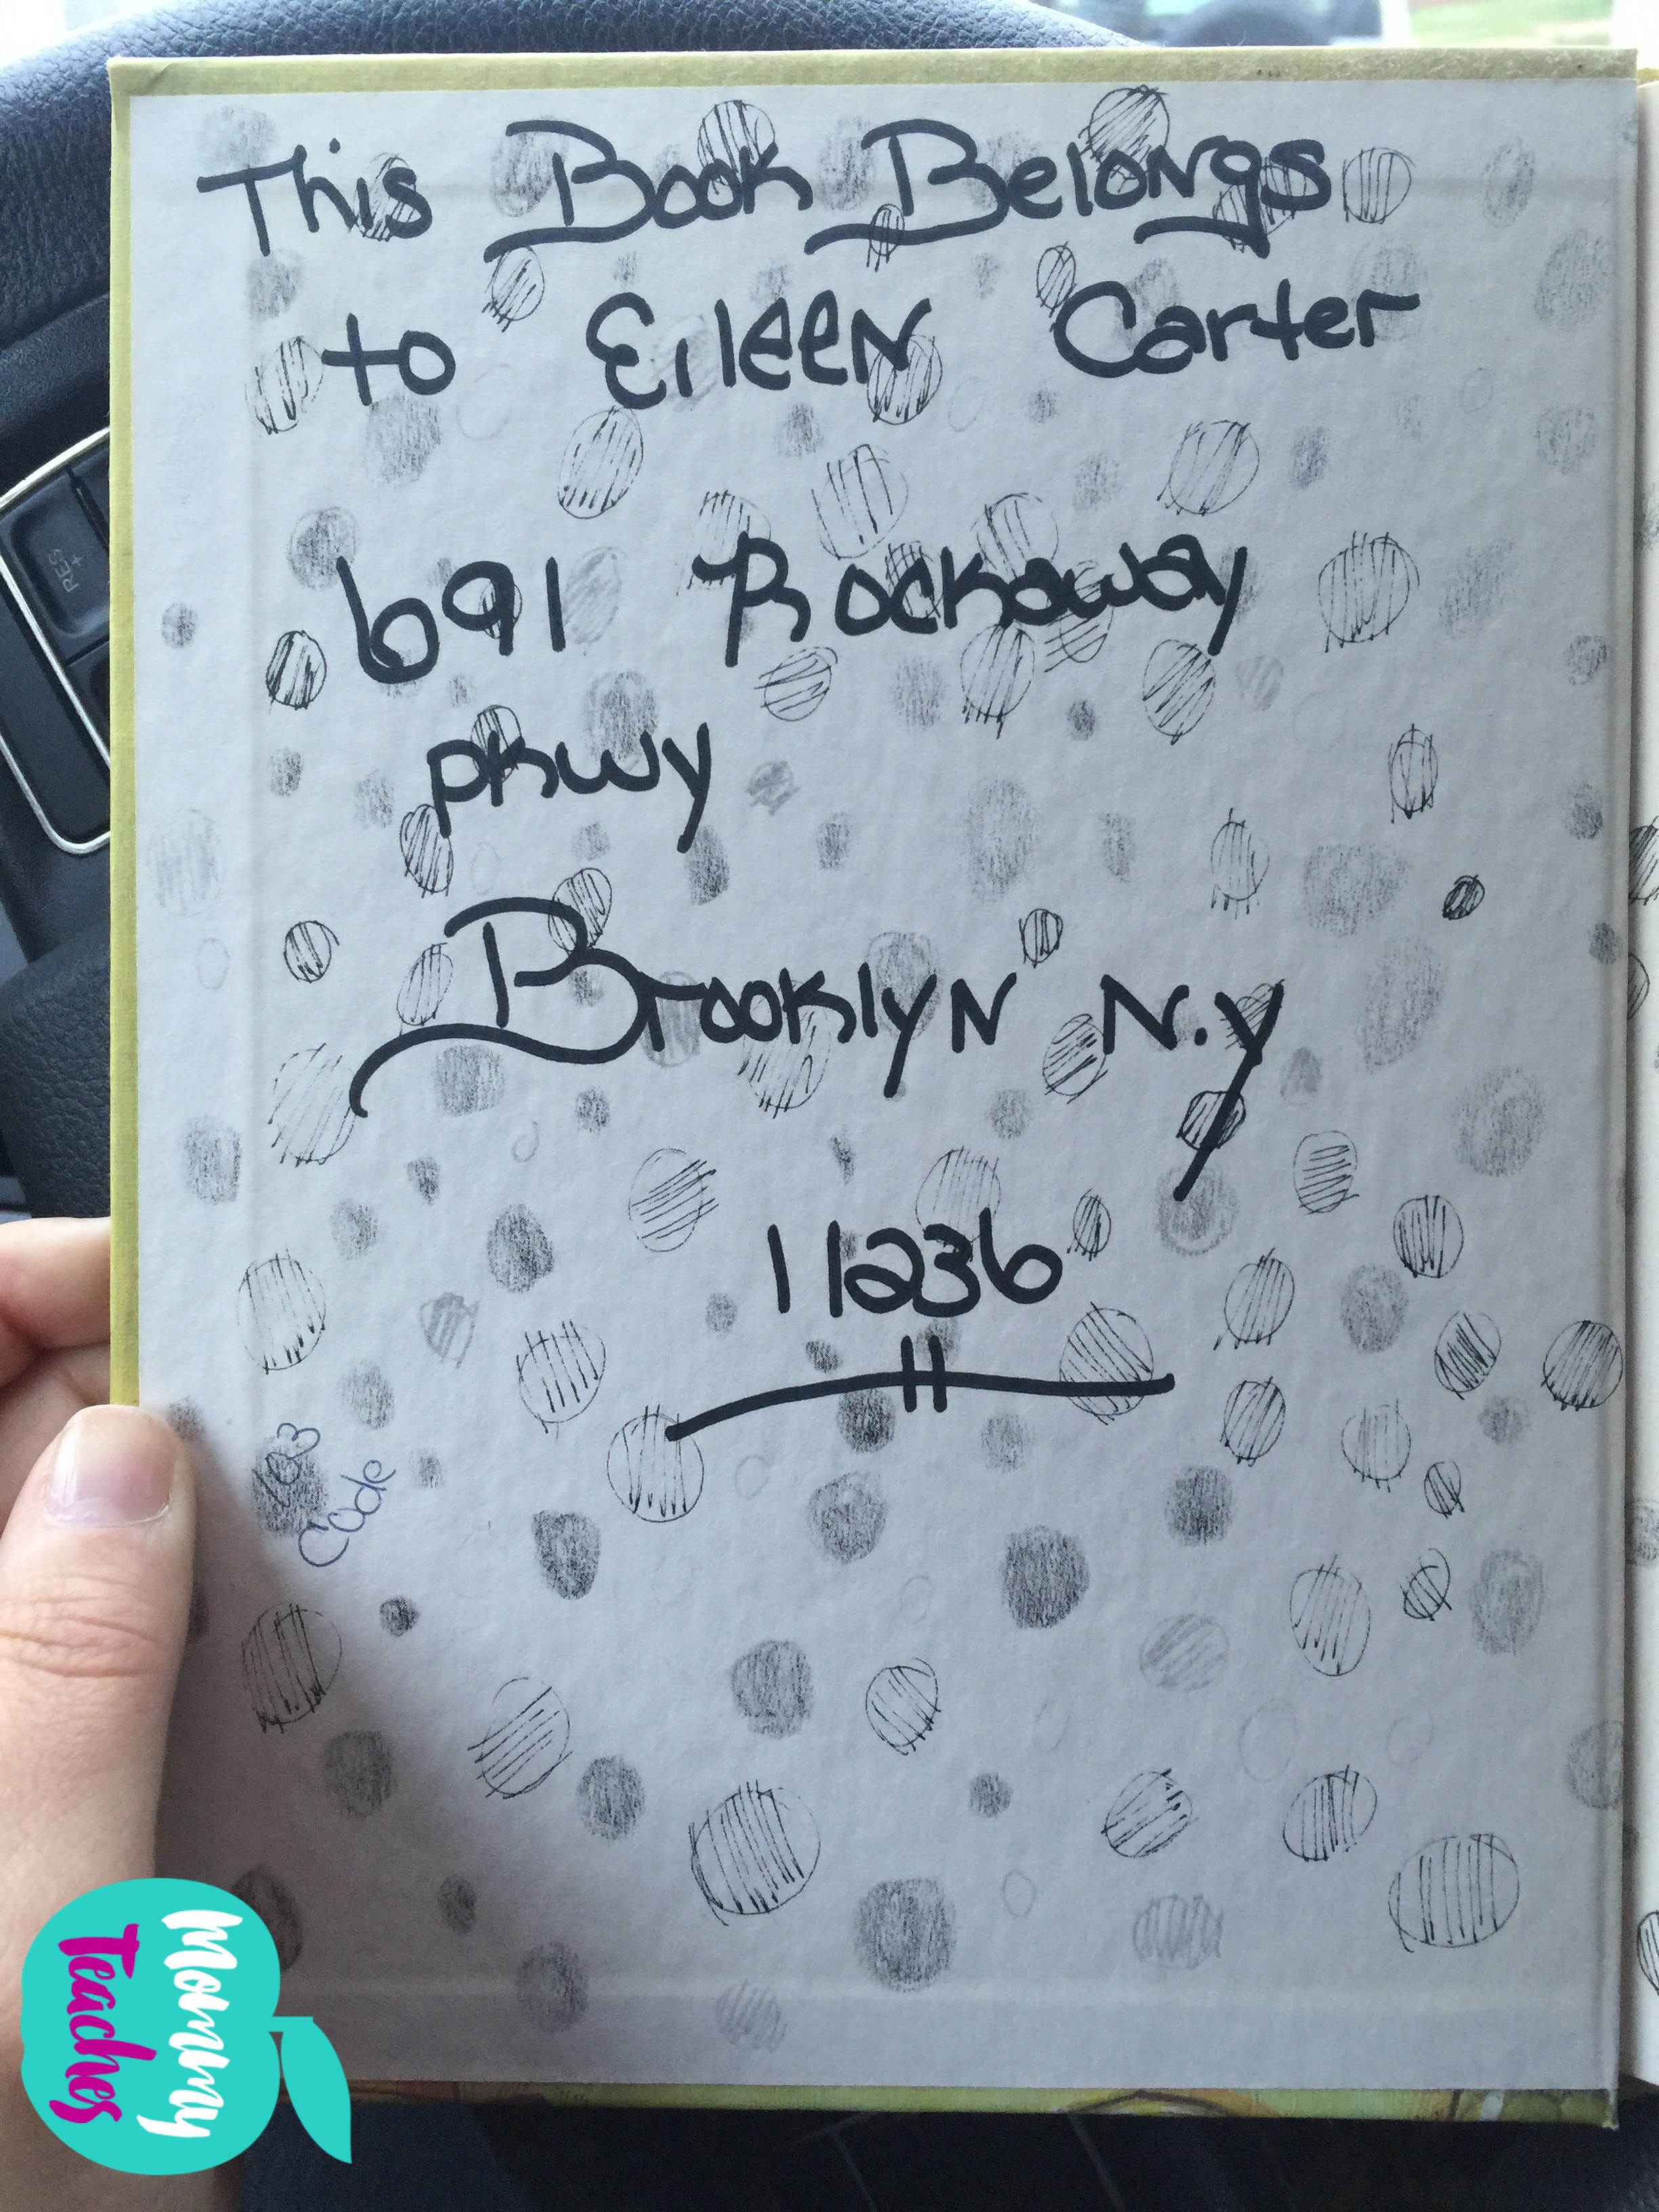 This Book Belongs
to Eileen Carter
691 Rockaway
pkwy
Brooklyn N.y
11236
123
Code
RES
+
Mommy
Teaches